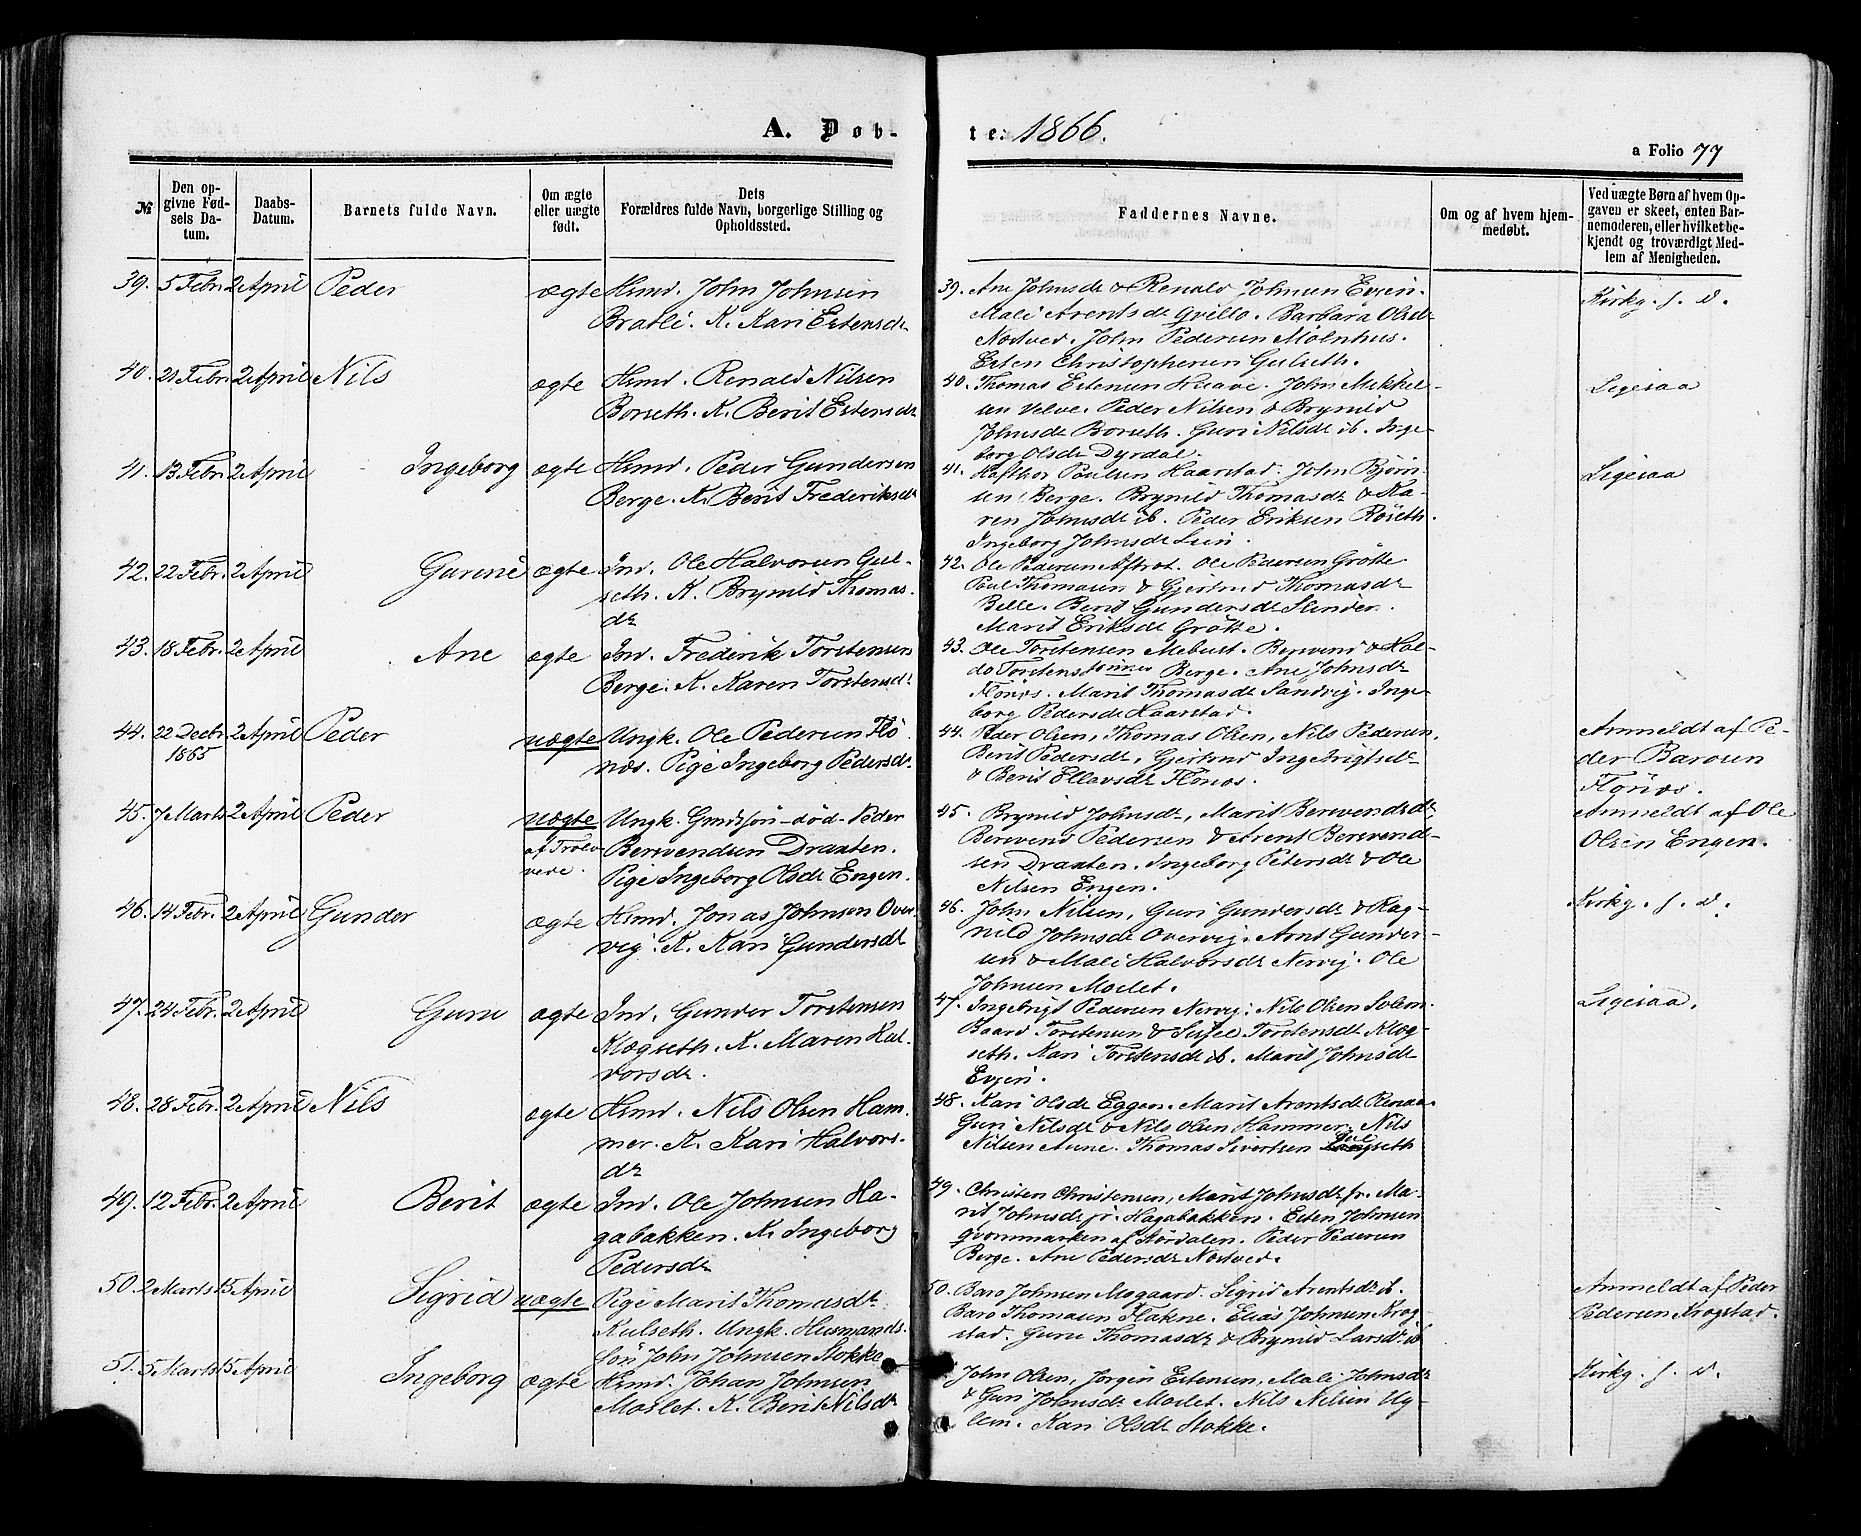 A. Døb-
te: 1866.
a Folio 77
№
Den op-
givne Fød-
sels Da-
tum.
Daabs-
Datum.
Barnets fulde Navn.
Om ægte
eller uægte
født.
Dets
Forældres fulde Navn, borgerlige Stilling og
Opholdssted.
Faddernes Navne.
Om og af hvem hjem-
medøbt.
Ved uægte Børn af hvem Op-
gaven er skeet, enten Bar-
nemoderen, eller hvilket be-
kjendt og troværdigt Med-
lem af Menigheden.
39. 5 Febr. 2 April Peder ægte Hsmd. John Johnsen
Bratli. K. Kari Estensdr
39. Ane Johnsdr & Renald Johnsen Evjen.
Mali Arentsdr Qvillo. Barbara Olsdr
Nostved. John Pedersen Molnhus.
Esten Christophersen Gulseth.
Kirkg. s. d.
40. 21 Febr. 2 April Nils ægte Hsmd. Renald Nilsen
Borseth. K. Berit Estensdr
40. Thomas Estensen Huave. John Mikkel-
sen Velve. Peder Nilsen & Brynild
Johnsdr Borseth. Guri Nilsdr ib. Inge-
borg Olsdr Dyrdal.
Ligesaa
41. 13 Febr. 2 April Ingeborg ægte Hsmd. Peder Gundersen
Berge. K. Berit Frederiksdr
41. Hafthor Poulsen Haarstad. John Bjørn-
sen Berge. Brynild Thomasdr & Ka-
ren Johnsdr ib. Peder Eriksen Röseth.
Ingeborg Johnsdr Lien.
Ligesaa
42. 22 Febr. 2 April Gurine ægte Ind. Ole Halvorsen Gul-
seth. K. Brynild Thomas-
dr
42. Ole Pedersen Aftret. Ole Pedersen Grötte
Poul Thomasen & Gjertrud Thomasdr
Belle. Berit Gundersdr Slinder.
Marit Eriksdr Grötte.
43. 18 Febr. 2 April Ane ægte Ind. Frederik Torstensen
Berge. K. Karen Torstensdr
43. Ole Torstensen Mebust. Berevend & Hal-
do Torstenssönner Berge. Ane Johnsdr
Flönes. Marit Thomasdr Sandvig. Inge-
borg Pedersdr Haarstad.
44. 22 Decbr. 2 April Peder uægte Ungk. Ole Pedersen Flö-
1865
næs. Pige Ingeborg Pedersdr
44. Peder Olsen, Thomas Olsen, Nils Pedersen.
Berit Pedersdr, Gjertrud Ingebrigtsdr
& Berit Ellevsdr Flönæs.
Anmeldt af Pe-
der Baroen
Flönæs.
45. 7 Marts 2 April Peder uægte Ungk. Grdssön - död - Peder
af Trolo-
vede.
Berevendsen Draxten.
Pige Ingeborg Olsdr Engen.
45. Brynild Johnsdr, Marit Berevendsdr,
Berevend Pedersen & Arent Berevend-
sen Draxten. Ingeborg Petersdr & Ole
Nilsen Engen.
Anmeldt af Ole
Olsen Engen.
46. 14 Febr. 2 April Gunder ægte Hsmd. Jonas Johnsen Over-
vig. K. Kari Gundersdr
46. John Nilsen, Guri Gundersdr & Rag-
nild Johnsdr Overvig. Arnt Gunder-
sen & Mali Halvorsdr Nervig. Ole
Johnsen Moslet.
Kirkg. s. d.
47. 24 Febr. 2 April Guru ægte Ind. Gunder Torstensen
Klægseth. K. Maren Hal-
vorsdr.
47. Ingebrigt Pedersen Nervig. Nils Olsen Solem.
Baard Torstensen & Sissel Torstensdr Klæg-
seth. Kari Torstensdr ib. Marit Johnsdr
Evjen.
Ligesaa.
48. 28 Febr. 2 April Nils ægte Hsmd. Nils Olsen Ham-
mer. K. Kari Halvors-
dr
48. Kari Olsdr Eggen. Marit Arentsdr Renaa.
Guri Nilsdr & Nils Olsen Hammer. Nils
Nilsen Aune. Thomas Sivertsen Gulseth
49. 12 Febr. 2 April Berit ægte Ind. Ole Johnsen Ha-
gabakken. K. Ingeborg
Pedersdr
49. Christen Christensen, Marit Johnsdr sr. Ma-
rit Johnsdr jr. Hagabakken. Esten Johnsen
Grönmarken af Stördalen. Peder Pedersen
Berge. Ane Pedersdr Nostved.
50. 2 Marts 15 April Sigrid uægte Pige Marit Thomasdr
Kulseth. Ungk. Husmands-
Sön John Johnsen Stokke
50. Baro Johnsen Mogaard. Sigrid Arentsdr ib.
Baro Thomasen Flakne. Elias Johnsen Krog-
stad. Guru Thomasdr & Brynild Larsdr ib.
Anmeldt af Peder
Pedersen Krogstad.
51. 5 Marts 15 April Ingeborg ægte Hsmd. Johan Johnsen
Moslet. K. Berit Nilsdr
John Olsen, Jörgen Estensen, Mali Johnsdr
& Guri Johnsdr Moslet. Nils Nilsen Ug-
lem. Kari Olsdr Stokke.
Kirkg. s. d.